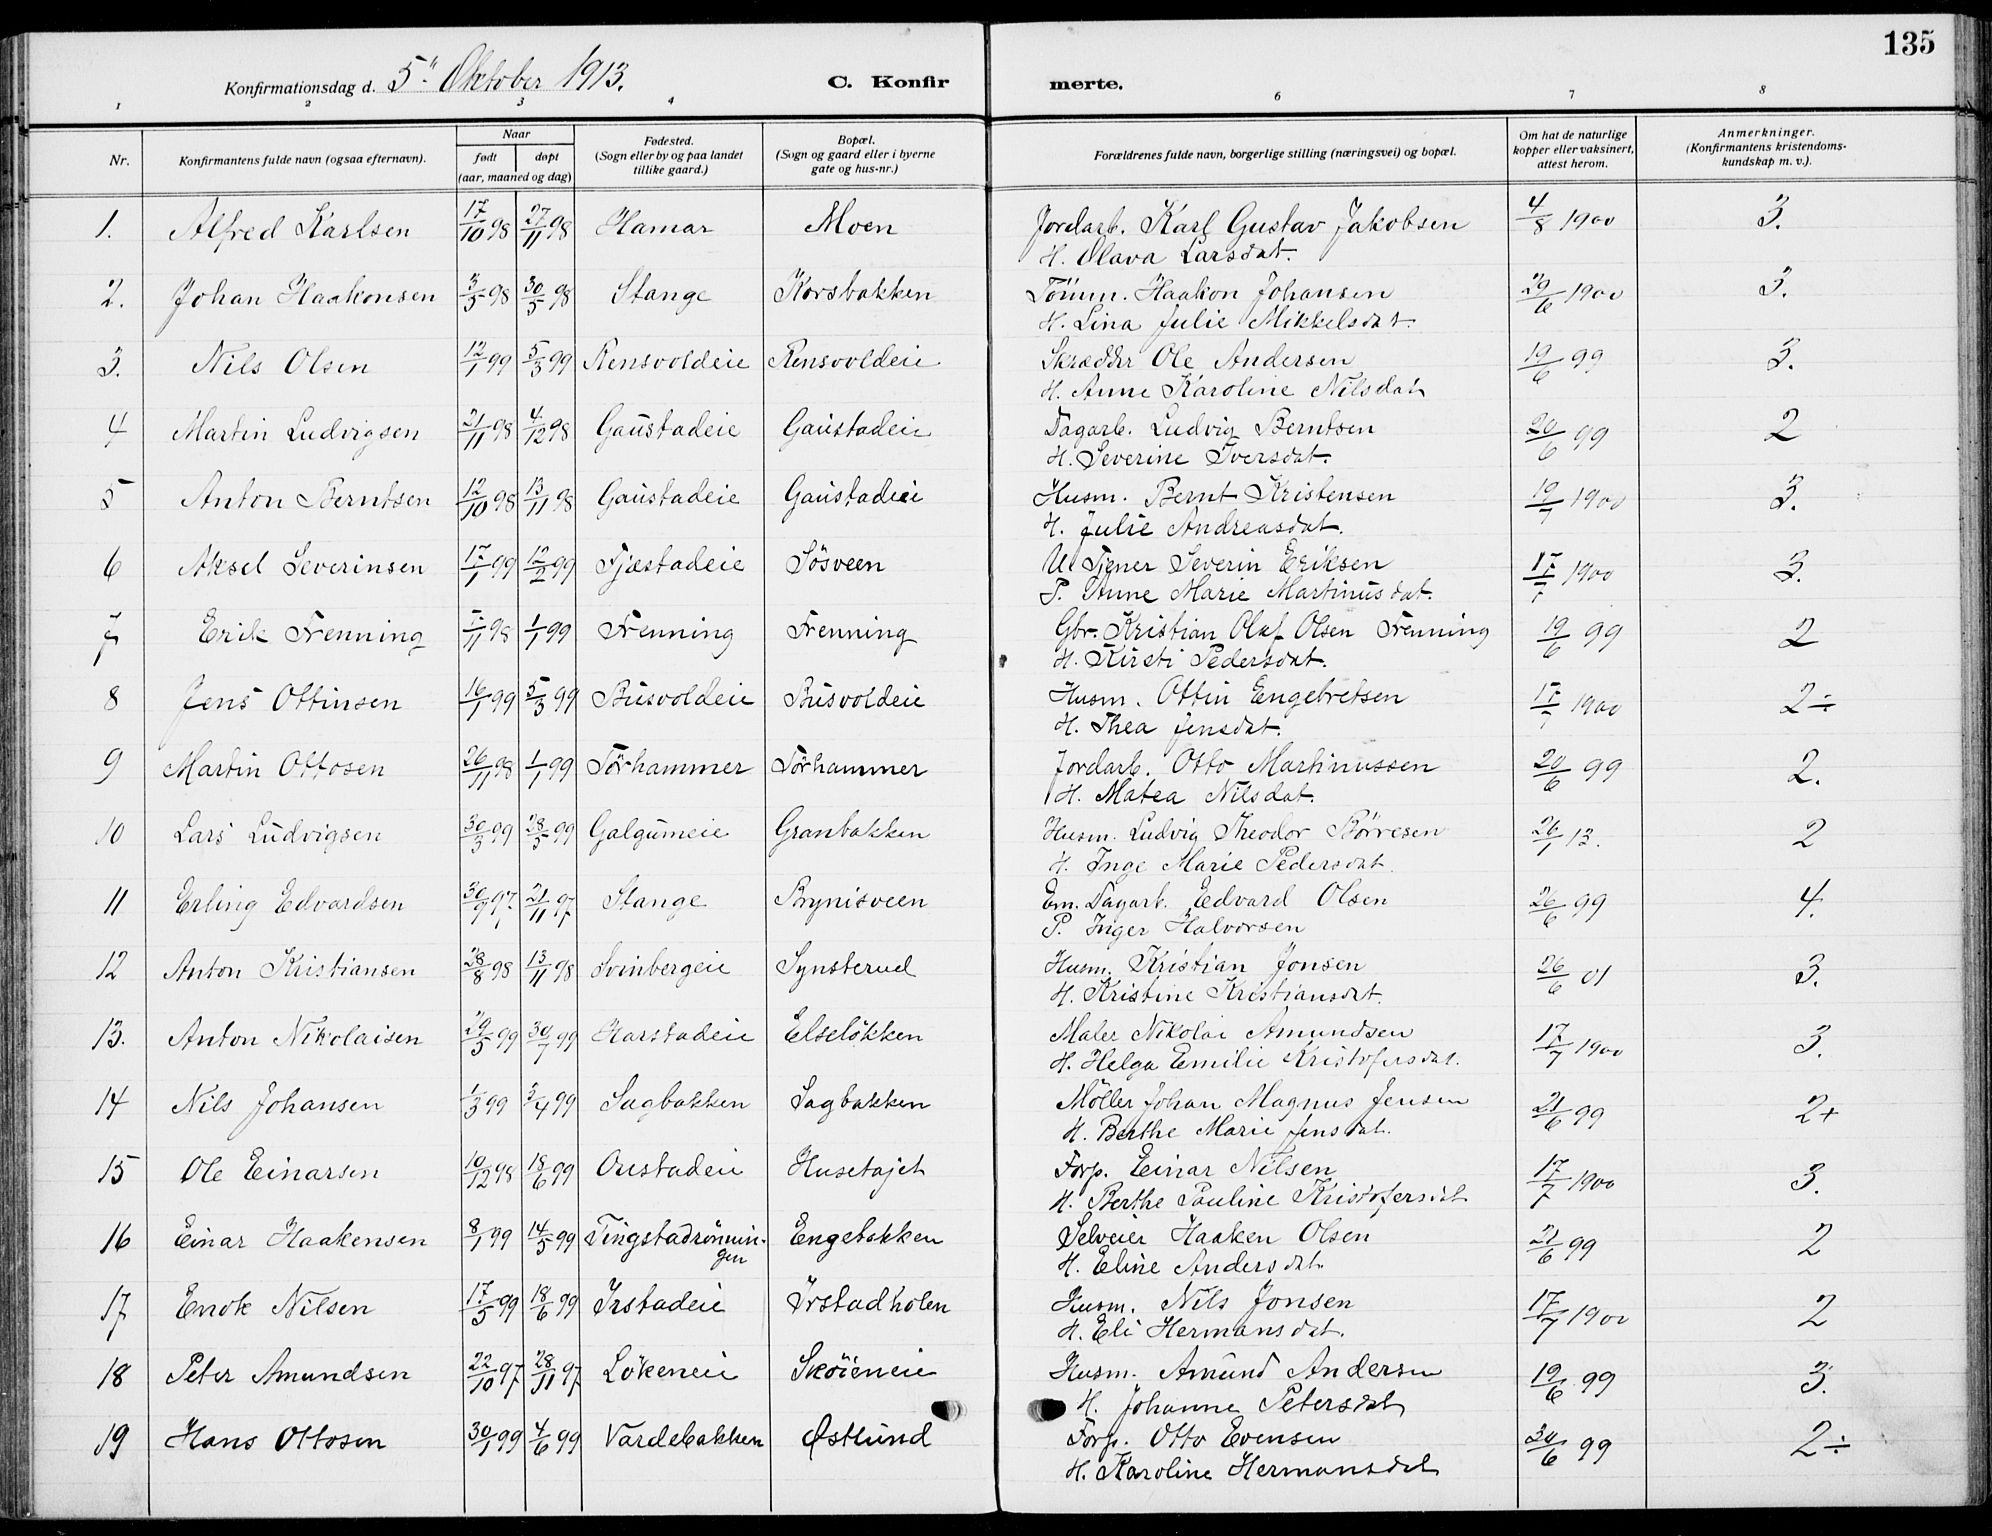 135
Konfirmationsdag d. 5" Oktober 1913. C. Konfirmerte.
1 2 3 4 6 7 8
Nr. Konfirmantens fulde navn (ogsaa efternavn). Naar født døpt (aar, maaned og dag) Fødested. (Sogn eller by og paa landet tillike gaard.) Bopæl. (Sogn og gaard eller i byerne gate og hus-nr.) Forældrenes fulde navn, borgerlige stilling (næringsvei) og bopæl. Om hat de naturlige kopper eller vaksinert, attest herom. Anmerkninger. (Konfirmantens kristendomskundskap m. v.).
1. Alfred Karlsen 17/10 98 27/11 98 Hamar Moen Jordarb. Karl Gustav Jakobsen 4/8 1900 3.
H. Olava Larsdat.
2. Johan Haakonsen 3/5 98 30/5 98 Stange Korsbakken Tömm. Haakon Johansen 29/6 1900 3.
H. Lina Julie Mikkelsdat.
3. Nils Olsen 12/1 99 5/3 99 Rensvoldeie Rensvoldeie Skrædder Ole Andersen 19/6 99 3.
H. Anne Karoline Nilsdat
4 Martin Ludvigsen 21/11 98 4/12 98 Gaustadeie Gaustadeie Dagarb. Ludvig Berntsen 20/6 99 2
H. Severine Iversdat.
5 Anton Berntsen 12/10 98 13/11 98 Gaustadeie Gaustadeie Husm. Bernt Kristensen 19/7 1900 3.
H. Julie Andreasdat.
6 Aksel Severinsen 17/1 99 12/2 99 Fjæstadeie Sösveen U. Tjener Severin Eriksen 17/7 1900 3.
P. Anne Marie Martinusdat.
7 Erik Frenning 7/11 98 1/1 99 Frenning Frenning Gbr. Kristian Olaf Olsen Frenning 19/6 99 2
H. Kirsti Pedersdat.
8 Jens Ottinsen 16/1 99 5/3 99 Busvoldeie Busvoldeie Husm. Ottin Engebretsen 17/7 1900 2÷
H. Thea Jensdat.
9 Martin Ottosen 26/11 98 1/1 99 Törhammer Törhammer Jordarb. Otto Martinussen 20/6 99 2.
H. Matea Nilsdat.
10 Lars Ludvigsen 30/3 99 28/5 99 Galgumeie Granbakken Husm. Ludvig Theodor Börresen 26/1 13. 2
H. Inge Marie Pedersdat.
11 Erling Edvardsen 30/9 97. 21/11 97 Stange Brynisveen Em. Dagarb. Edvard Olsen 26/6 99 4.
P. Inger Halvorsen
12 Anton Kristiansen 28/8 98 13/11 98 Svinbergeie Synsterud Husm. Kristian Jonsen 26/6 01 3.
H. Kristine Kristiansdat.
13. Anton Nikolaisen 29/5 99 30/7 99 Harstadeie Elselökken Maler Nikolai Amundsen 17/7 1900 3.
H. Helga Emilie Kristofersdat.
14 Nils Johansen 1/3 99 3/4 99 Sagbakken Sagbakken Möller Johan Magnus Jensen 21/6 99 2+
H. Berthe Marie Jensdat.
15 Ole Einarsen 10/12 98 18/6 99 Oustadeie Husetajet Forp. Einar Nilsen 17/7 1900 3.
H. Berthe Pauline Kristofersdat
16 Einar Haakensen 8/1 99 14/5 99 Tingstadrönningen Engebakken Selveier Haaken Olsen 21/6 99 2
H. Eline Andersdat.
17 Enok Nilsen 17/5 99 18/6 99 Irstadeie Irstadholen Husm. Nils Jonsen 17/7 1900 2
H. Eli Hermansdat.
18 Peter Amundsen 22/10 97 28/11 97 Lökeneie Sköieneie Husm. Amund Andersen 19/6 99 3.
H. Johanne Petersdat
19 Hans Ottosen 30/1 99 4/6 99 Vardebakken Østlund Forp. Otto Evensen 30/6 99 2÷
H. Karoline Hermansdat